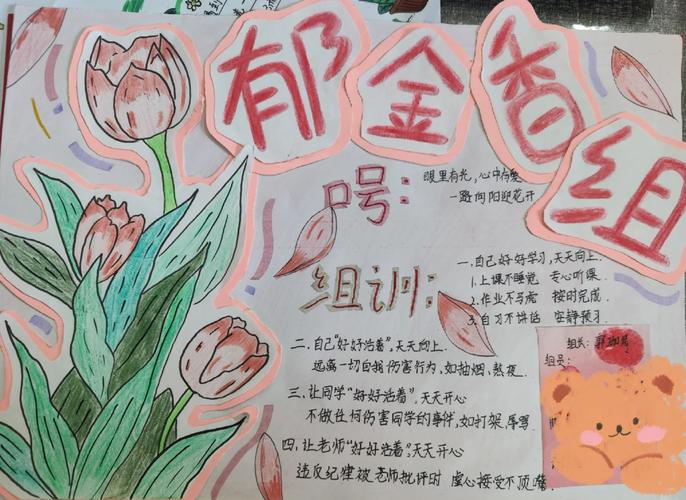 郁金香组
口号：
眼里有光，心中有爱
一路向阳迎花开
组训：
一、自己好好学习，天天向上.
1.上课不睡觉 专心听课.
2.作业不马虎 按时完成.
3.自习不讲话 安静预习.
二、自己“好好活着”，天天向上.
远离一切自我伤害行为，如抽烟，熬夜.
三、让同学“好好活着”，天天开心
不做任何伤害同学的事件，如打架，辱骂.
四、让老师“好好活着”，天天开心
违反纪律被老师批评时 虚心接受不顶嘴
组长：
组员：